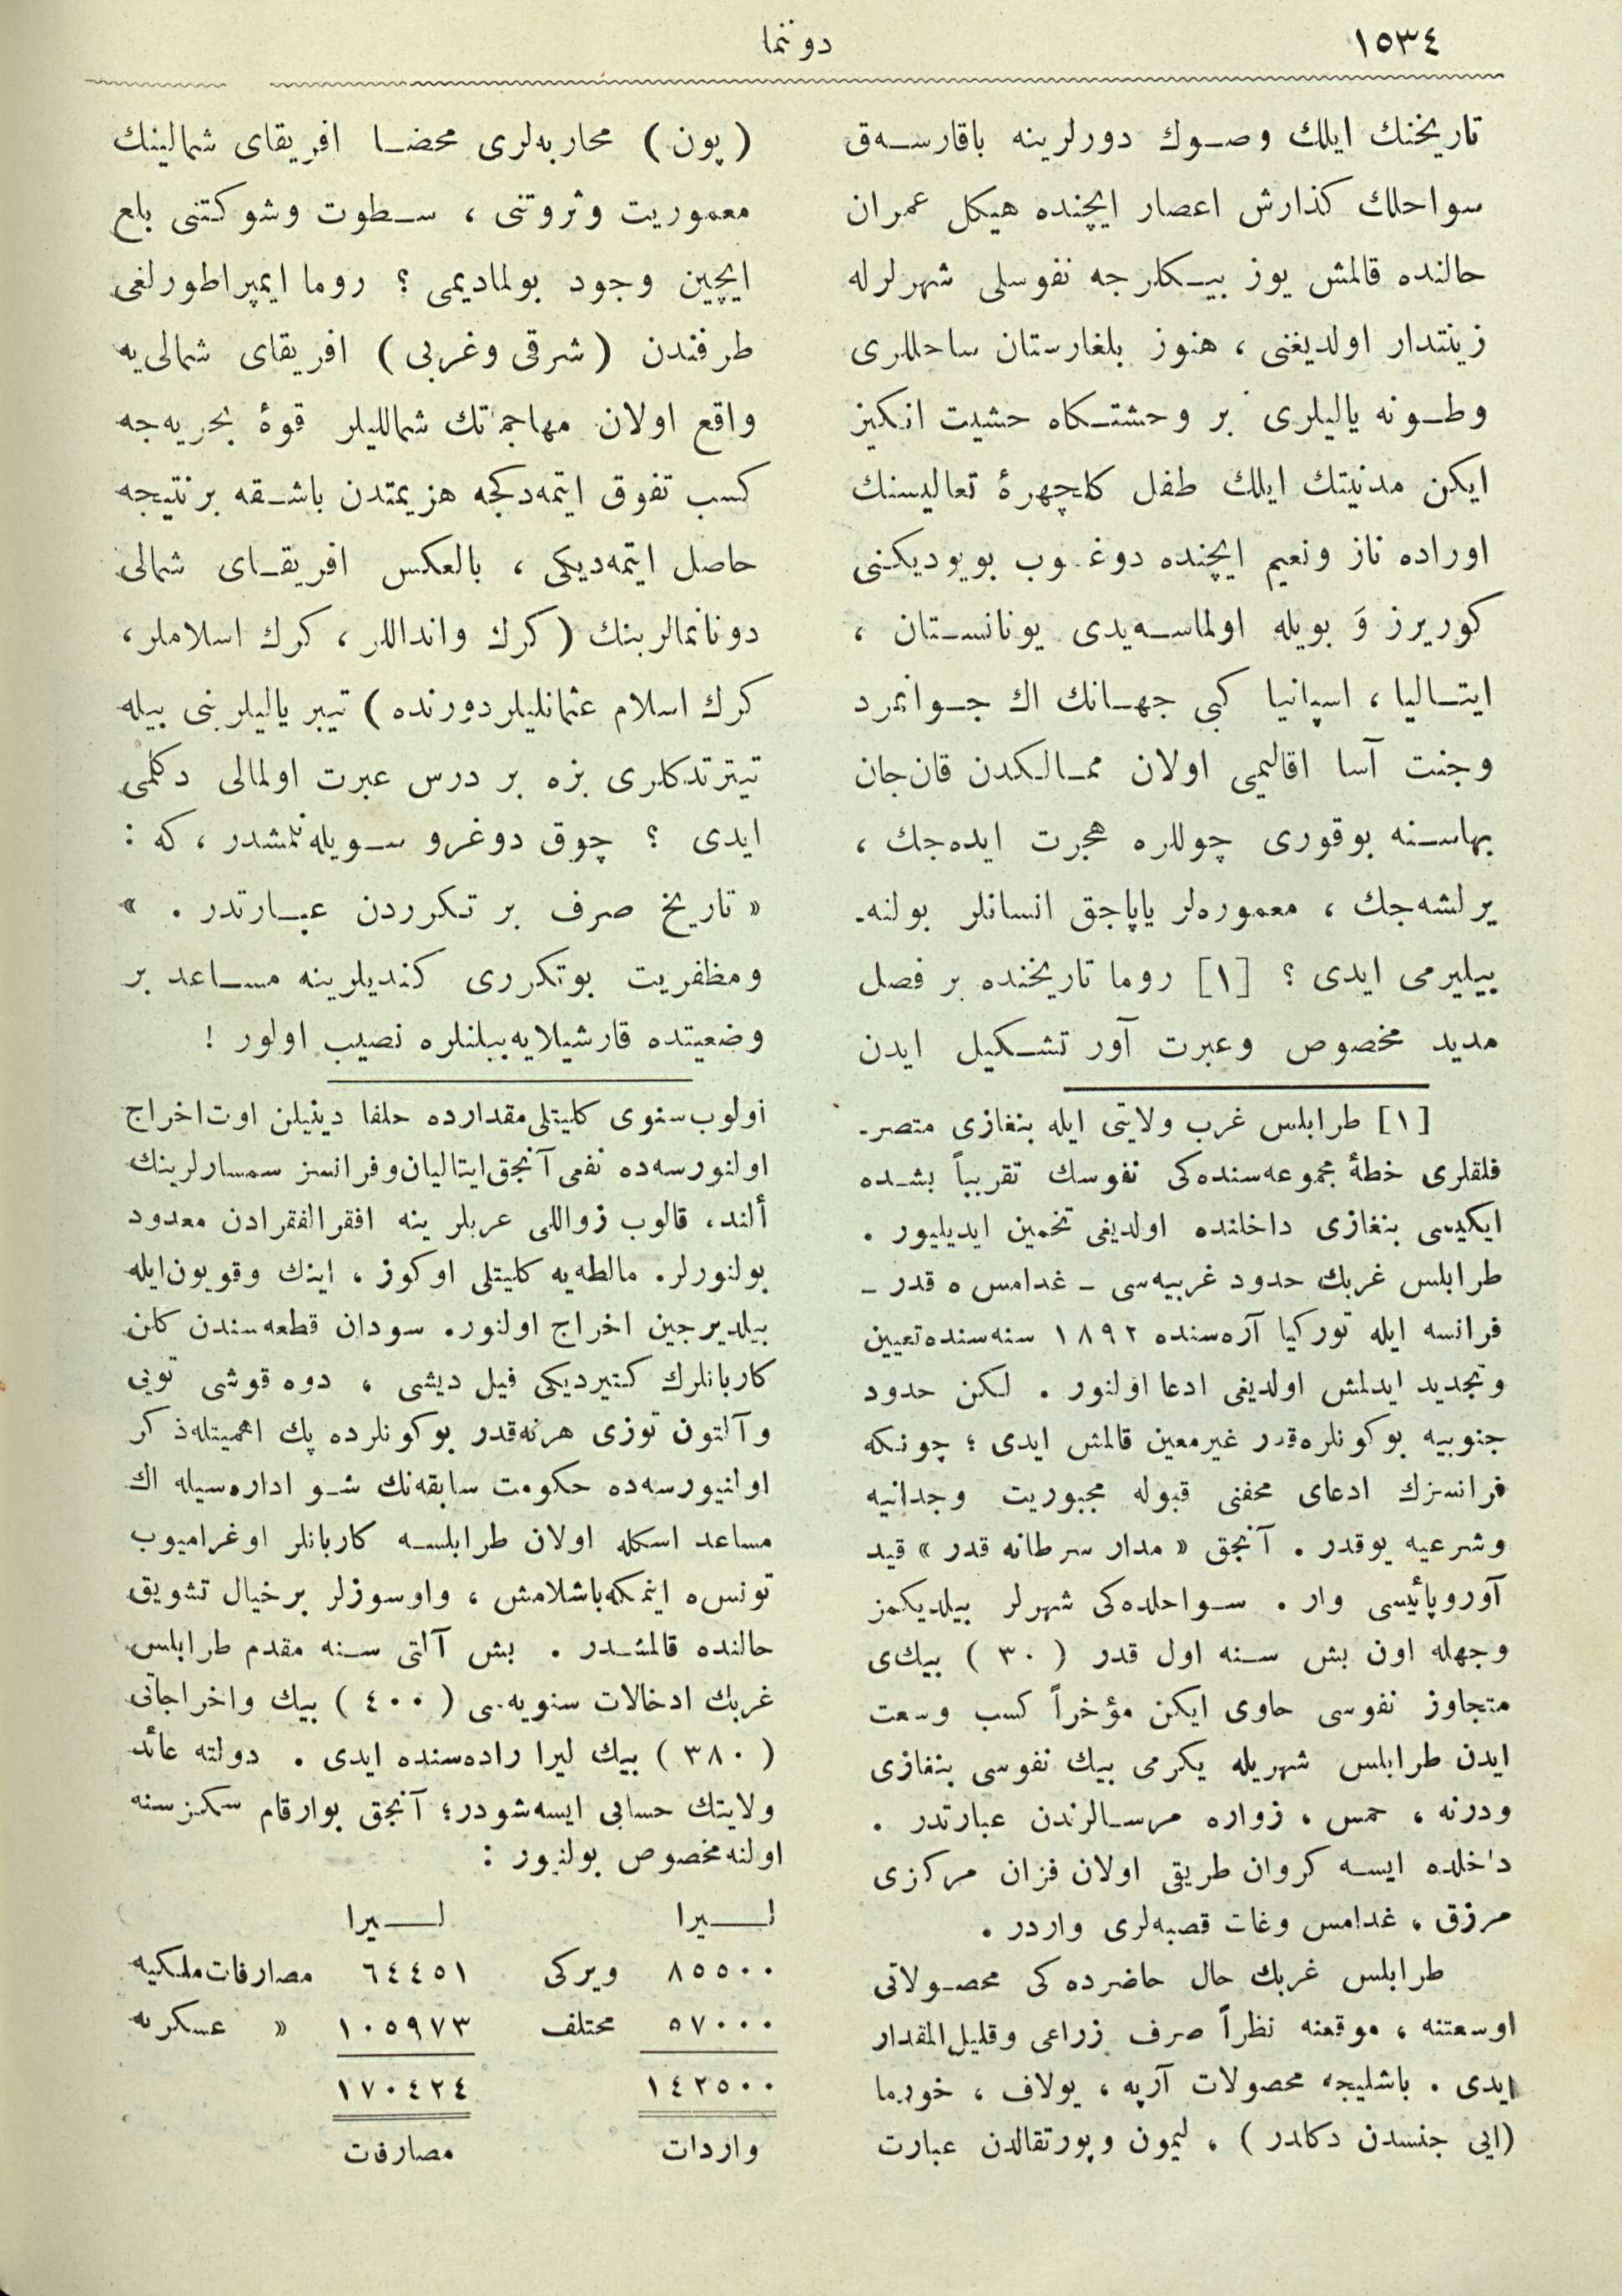 ١٥٣٤
دوننما
تاریخنك ایلك وصوك دورلرینه باقارسه‌ق
سواحلك كذارش اعصار ایچنده هیكل عمران
حالنده قالمش یوز بیكلرجه نفوسلی شهرلرله
زینتدار اولدیغنی ، هنوز بلغارستان ساحللری
وطونه یالیلری بر وحشتكاه حشیت انكیز
ایكن مدنیتك ایلك طفل كلچهرهٔ تعالیسنك
اوراده ناز ونعیم ایچنده دوغوب بویودیكنی
كوریرز وَ بویله اولماسه‌یدی یونانستان ،
ایتالیا ، اسپانیا كبی جهانك اك جوانمرد
وجنت آسا اقالیمی اولان ممالكدن قان جان
بهاسنه بوقوری چوللره هجرت ایده‌جك ،
یرلشه‌جك ، معموره‌لر یاپاجق انسانلر بولنه‌ـ
بیلیرمی ایدی ؟ [١] روما تاریخنده بر فصل
مدید مخصوص وعبرت آور تشكیل ایدن
[١] طرابلس غرب ولایتی ایله بنغازی متصرـ
فلقلری خطهٔ مجموعه‌سنده‌كی نفوسك تقریباً بشده
ایكیسی بنغازی داخلنده اولدیغی تخمین ایدیلیور .
طرابلس غربك حدود غربیه‌سی ـ غدامس ه قدر ـ
فرانسه ایله توركیا آره‌سنده ١٨٩٢ سنه‌سنده تعیین
وتجدید ایدلمش اولدیغی ادعا اولنور . لكن حدود
جنوبیه بوكونلره‌قدر غیرمعین قالمش ایدی ؛ چونكه
فرانسزك ادعای محفنی قبوله مجبوریت وجدانیه
وشرعیه یوقدر . آنجق « مدار سرطانه قدر » قید
آوروپائیسی وار . سواحلده‌كی شهرلر بیلدیكمز
وجهله اون بش سنه اول قدر ( ٣٠ ) بیك‌ی
متجاوز نفوسی حاوی ایكن مؤخراً كسب وسعت
ایدن طرابلس شهریله یكرمی بیك نفوسی بنغازی
ودرنه ، خمس ، زواره مرسالرندن عبارتدر .
داخلده ایسه كروان طریقی اولان فزان مركزی
مرزق ، غدامس وغات قصبه‌لری واردر .
طرابلس غربك حال حاضرده كی محصولاتی
اوسعتنه ، موقعنه نظراً صرف زراعی وقلیل المقدار
ایدی . باشلیجه محصولات آرپه ، یولاف ، خورما
(ایی جنسدن دكلدر) ، لیمون وپورتقالدن عبارت
(پون) محاربه‌لری محضا افریقای شمالینك
معموریت وثروتنی ، سطوت وشوكتنی بلع
ایچین وجود بولمادیمی ؟ روما ایمپراطورلغی
طرفندن (شرقی وغربی) افریقای شمالی‌یه
واقع اولان مهاجمتك شمالليلر قوهٔ بحریه‌جه
كسب تفوق ایتمه‌دكجه هزیمتدن باشقه بر نتیجه
حاصل ایتمه‌دیكی ، بالعكس افریقای شمالی
دونانمالرینك (كرك وانداللر ، كرك اسلاملر ،
كرك اسلام عثمانلیلر دورنده) تیبر یالیلرینی بیله
تیترتدكلری بزه بر درس عبرت اولمالی دكلمی
ایدی ؟ چوق دوغرو سویله‌نلمشدر ، كه :
« تاریخ صرف بر تكرردن عبارتدر . »
ومظفریت بوتكرری كندیلرینه مساعد بر
وضعیتده قارشیلایه‌بیلنلره نصیب اولور !
اولوب سنوی كلیتلی مقدارده حلفا دینیلن اوت اخراج
اولنورسه‌ده نفعی آنجق ایتالیان وفرانسز سمسارلرینك
ألنده قالوب زواللی عربلرینه افقر الفقرادن معدود
بولنورلر . مالطه‌یه كلیتلی اوكوز ، اینك وقویون ایله
بیلدیرجین اخراج اولنور . سودان قطعه‌سندن كلن
كاربانلرك كتیردیكی فیل دیشی ، دوه قوشی تویی
وآلتون توزی هرنه‌قدر بوكونلرده پك اهمیتله ذكر
اولنیورسه‌ده حكومت سابقه‌نك شو اداره‌سیله اك
مساعد اسكله اولان طرابلسه كاربانلر اوغرامیوب
تونس‌ه اینمكه باشلامش ، واوسوزلر بر خیال تشویق
حالنده قالمشدر . بش آلتی سنه مقدم طرابلس
غربك ادخالات سنویه‌سی ( ٤٠٠ ) بیك واخراجاتی
( ٣٨٠ ) بیك لیرا راده‌سنده ایدی . دولته عائد
ولایتك حسابی ایسه شودر ؛ آنجق بوارقام سكز سنه
اولنه مخصوص بولنیور :
لیرا لیرا
٨٥٥٠٠ ویركی ٦٤٤٥١ مصارفات ملكیه
٥٧٠٠٠ مختلف ١٠٥٩٧٣ « عسكریه
١٤٢٥٠٠ ١٧٠٤٢٤
واردات مصارفات